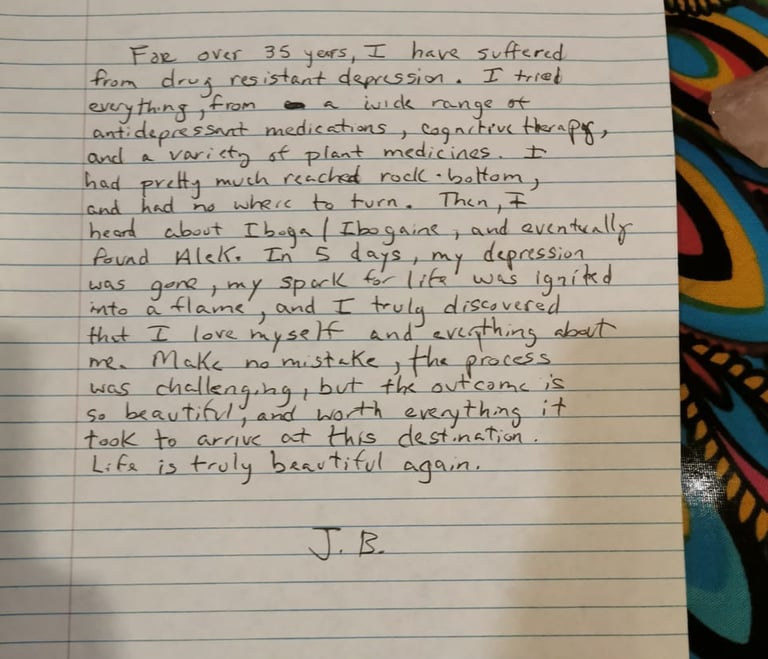 For over 35 years, I have suffered
from drug resistant depression. I tried
everything, from a wide range of
antidepressant medications, cognitive therapy,
and a variety of plant medicines. I
had pretty much reached rock-bottom,
and had no where to turn. Then, I
heard about Iboga/Ibogaine, and eventually
found Alek. In 5 days, my depression
was gone, my spark for life was ignited
into a flame, and I truly discovered
that I love myself and everything about
me. Make no mistake, the process
was challenging, but the outcome is
so beautiful, and worth everything it
took to arrive at this destination.
Life is truly beautiful again.
J.B.